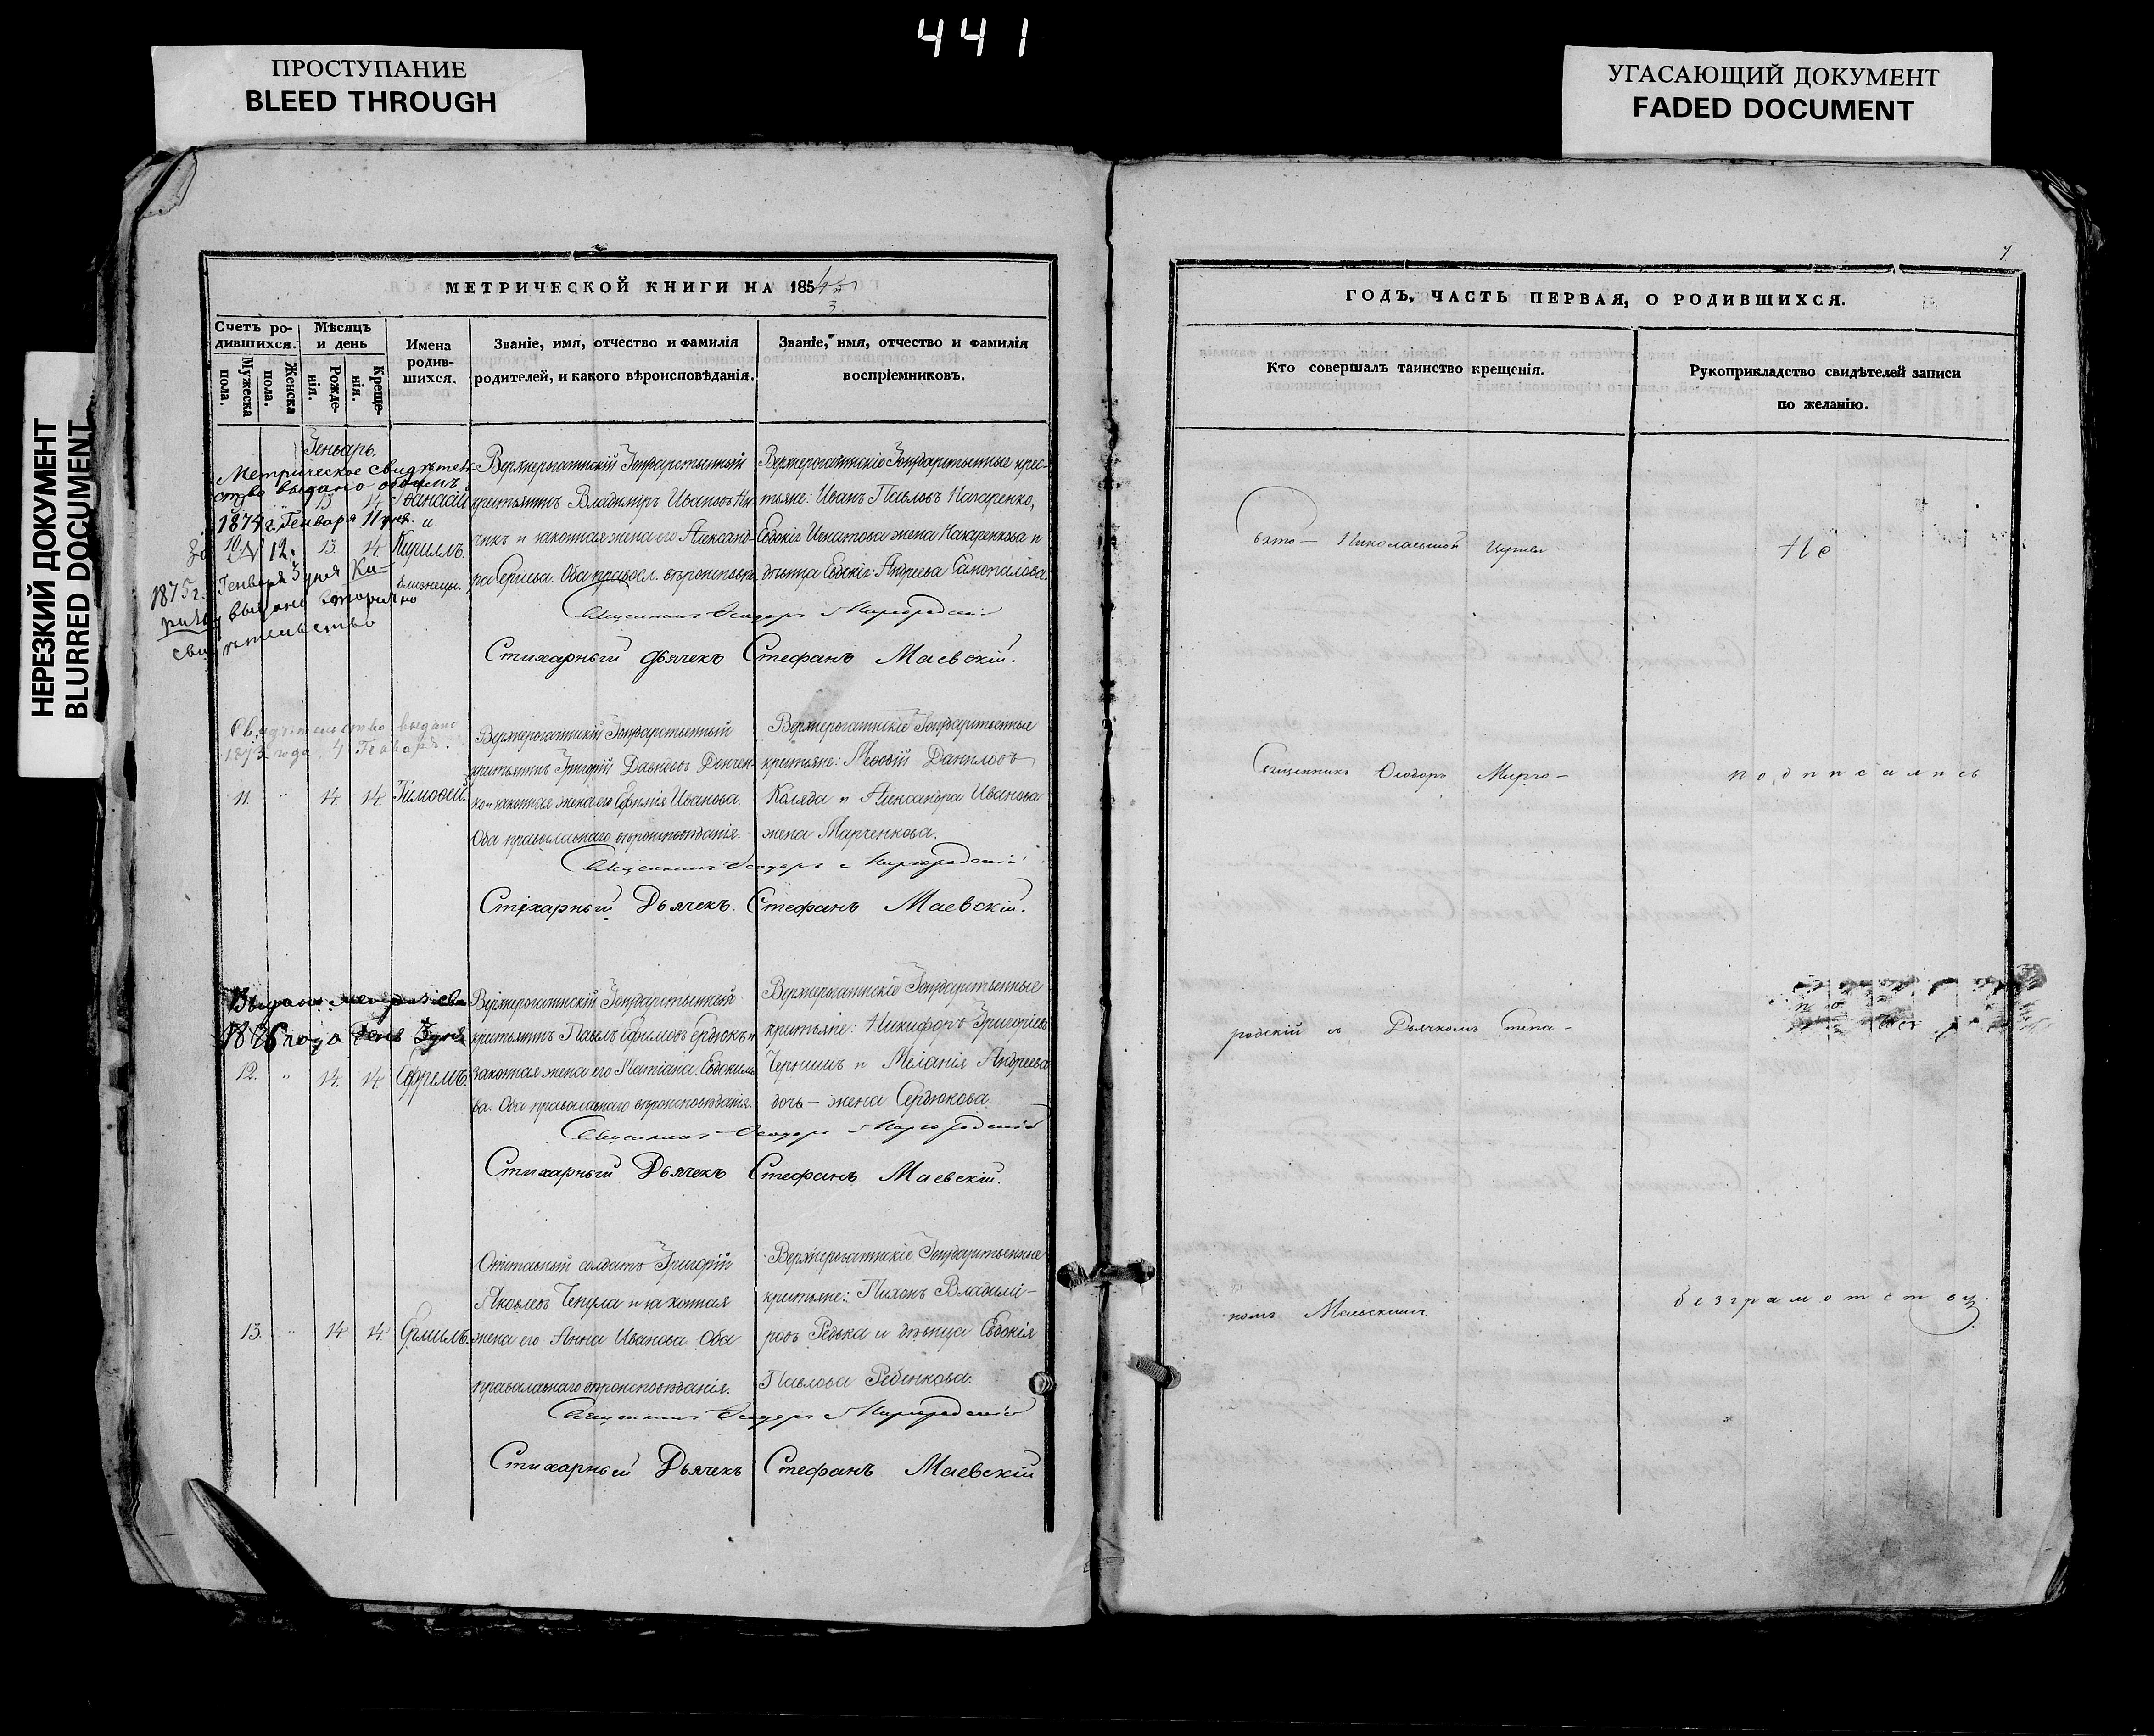 441
ПРОСТУПАНИЕ
BLEED THROUGH
УГАСАЮЩИЙ ДОКУМЕНТ
FADED DOCUMENT
НЕРЕЗКИЙ ДОКУМЕНТ
BLURRED DOCUMENT
МЕТРИЧЕСКОЙ КНИГИ НА 1854
Счетъ ро-
дившихся.
Мужеска
пола.
Женска
пола.
Мѣсяцъ
и день
Рожде-
нія.
Креще-
нія.
Имена
родив-
шихся.
Званіе, имя, отчество и фамилія
родителей, и какого вѣроисповѣданія.
Званіе, имя, отчество и фамилія
воспріемниковъ.
Генварь.
Метрическое свидѣтель-
ство выдано обоимъ
1874 г. Генваря 11 дня.
за № 12.
1875 г. Генваря 3 дня Ки-
риллу выдано вторично
свидѣтельство
13 14 Аѳанасій
и
10 13 14 Кириллъ.
близнецы.
Верхнерогатинскій Государственный
крестьянинъ Владиміръ Ивановъ
и законная жена его Александ-
ра Сергіева. Оба правосл. вѣроисповѣд.
Верхнерогатинскіе Государственные крес-
тьяне: Иванъ Павловъ Назаренко,
Евдокія Игнатова жена Назаренкова и
дѣвица Евдокія Андреева Самопалова.
Священникъ Ѳеодоръ Миргородскій
Стихарный дьячекъ Стефанъ Маевскій.
Свидѣтельство выдано
1873 года 4 Генваря.
11. " 14 14 Тимоѳей.
Верхнерогатинскій Государственный
крестьянинъ Григорій Давидовъ Дончен-
ко и законная жена его Евфимія Иванова.
Оба православнаго вѣроисповѣданія.
Верхнерогатинскіе Государственные
крестьяне: Меѳодій Даниловъ
Коляда и Александра Иванова
жена Марченкова.
Священникъ Ѳеодоръ Миргородскій
Стихарный Дьячекъ. Стефанъ Маевскій.
Выдано метрич. сви.
1876 года Генв 3 дня
12. " 14. 14. Ефремъ.
Верхнерогатинскій Государственный
крестьянинъ Павелъ Ефимовъ Сердюкъ и
законная жена его Татіана Евдокимо-
ва. Оба православнаго вѣроисповѣданія.
Верхнерогатинскіе Государственные
крестьяне: Никифоръ Григоріевъ
Чернышъ и Меланія Андреева
дочь - жена Сердюкова.
Священникъ Ѳеодоръ Миргородскій
Стихарный Дьячекъ Стефанъ Маевскій.
13. " 14 14 Ермилъ.
Отставный солдатъ Григорій
Яковлевъ Чепула и законная
жена его Анна Иванова. Оба
православнаго вѣроисповѣданія.
Верхнерогатинскіе Государственные
крестьяне: Тихонъ Владимі-
ровъ Редька и дѣвица Евдокія
Павлова Ребенкова.
Священникъ Ѳеодоръ Миргородскій
Стихарный Дьячекъ Стефанъ Маевскій
7
ГОДЪ, ЧАСТЬ ПЕРВАЯ, О РОДИВШИХСЯ.
Кто совершалъ таинство крещенія.
Рукоприкладство свидѣтелей записи
по желанію.
Свято- Николаевской Церкви
Священникъ Ѳеодоръ Мирго-
родскій съ Дьячкомъ Стефа-
номъ Маевскимъ.
Не
подписались
по
безграмотству.